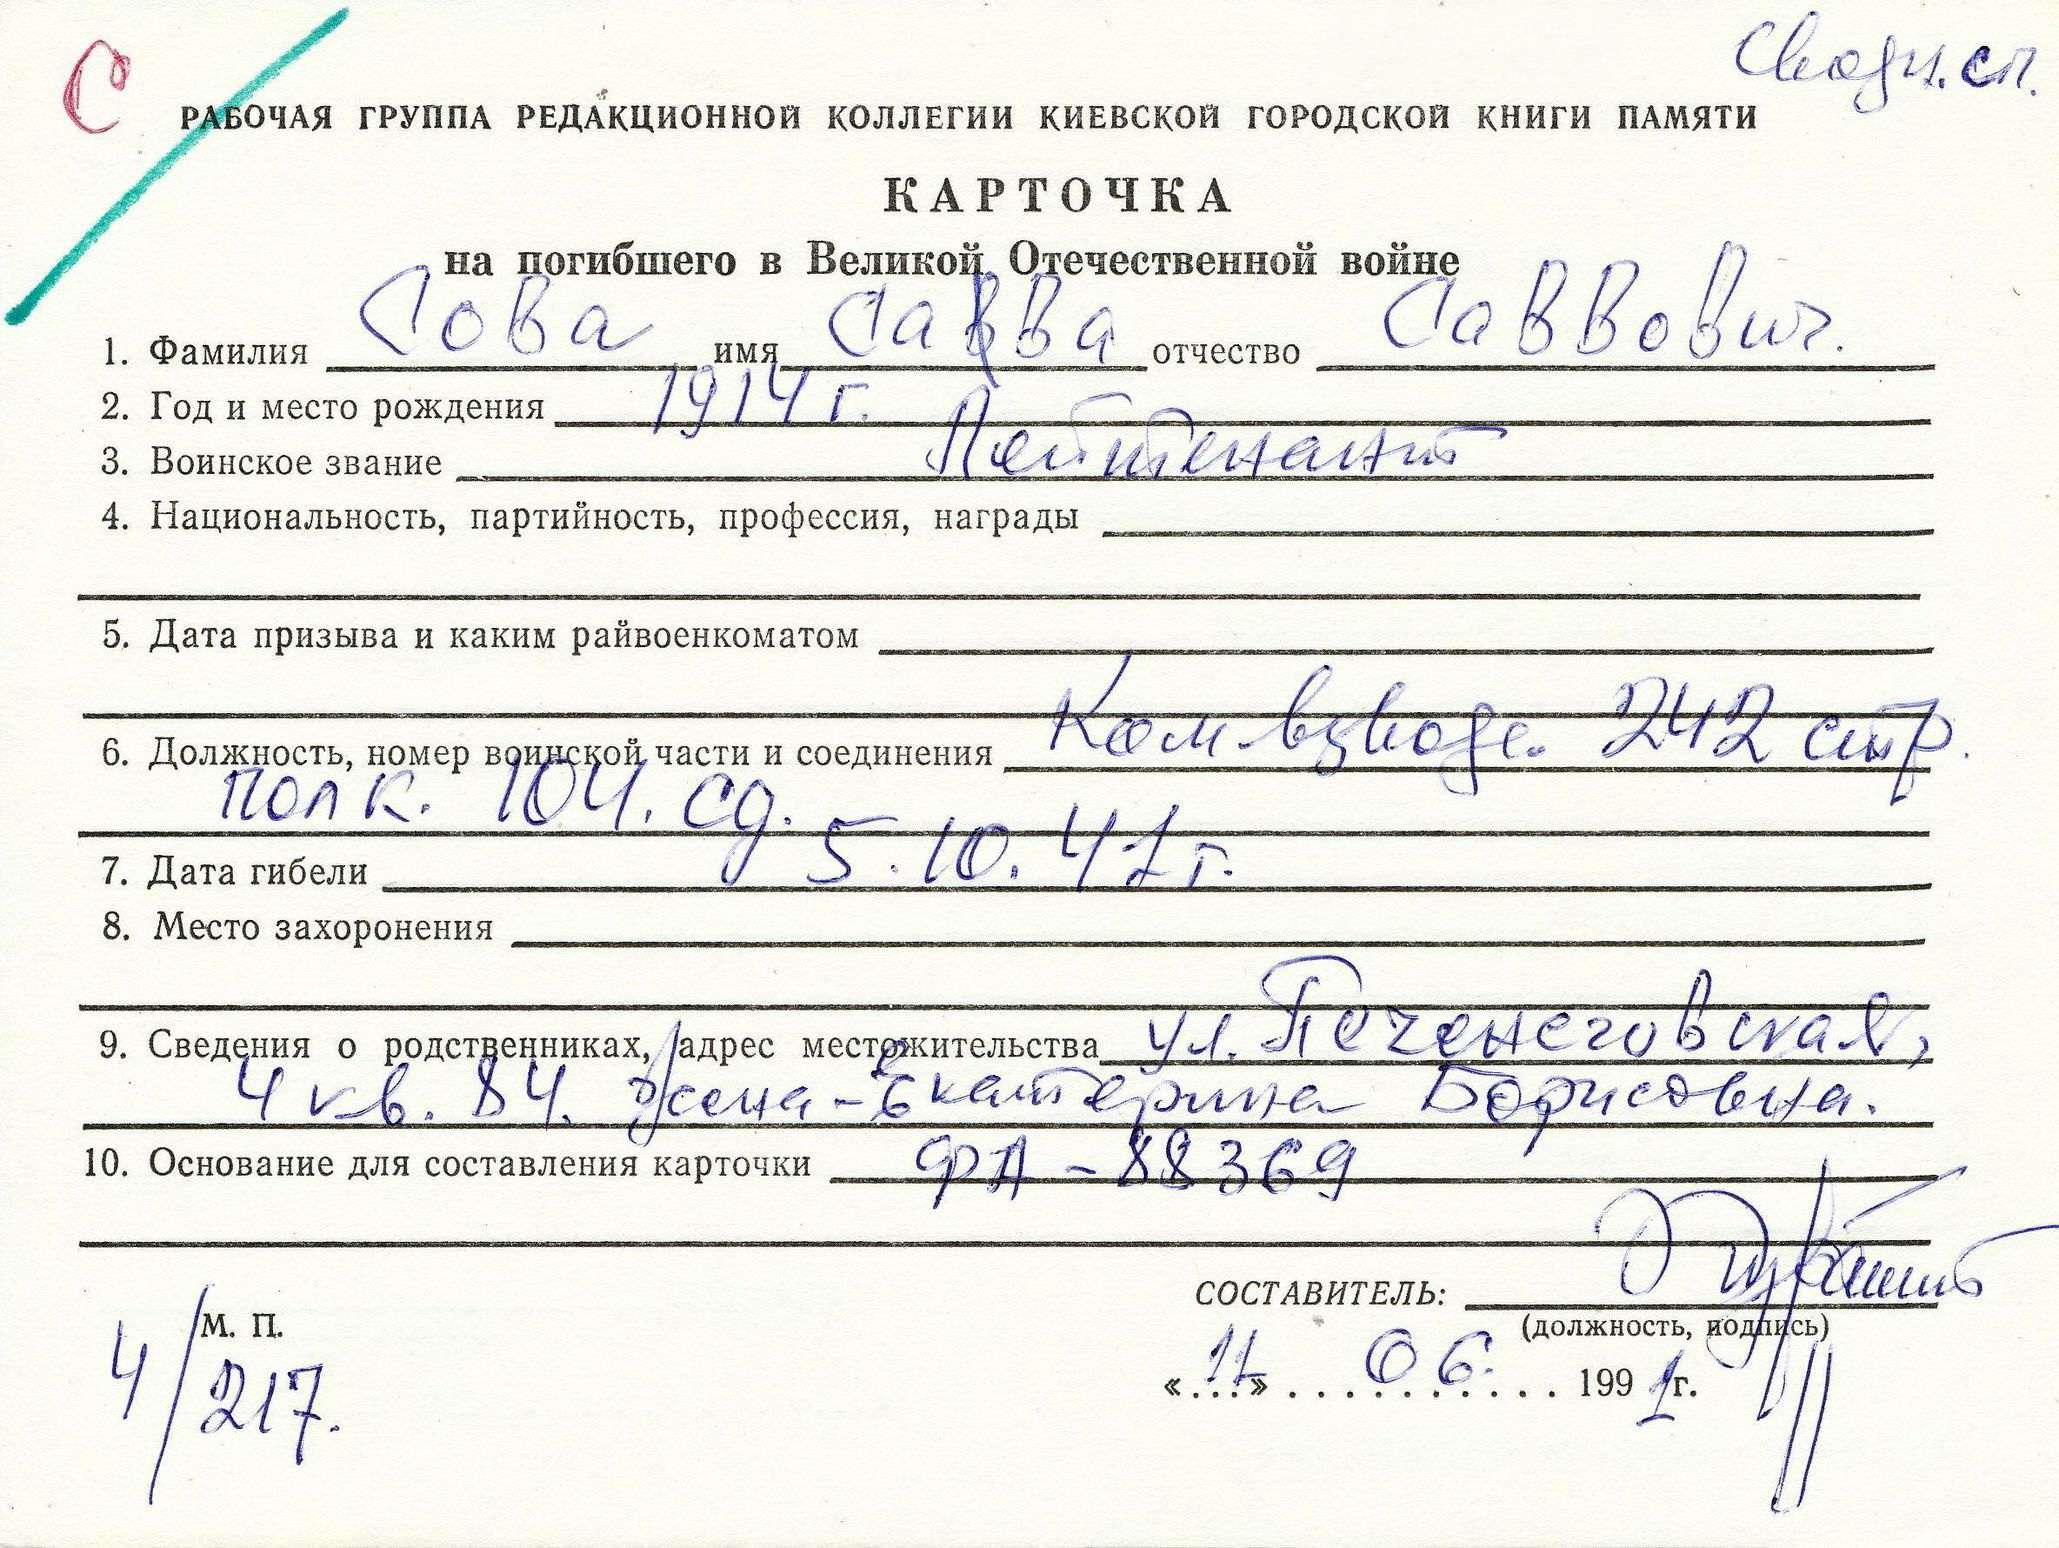 С
Сводн. сп.
РАБОЧАЯ ГРУППА РЕДАКЦИОННОЙ КОЛЛЕГИИ КИЕВСКОЙ ГОРОДСКОЙ КНИГИ ПАМЯТИ
КАРТОЧКА
на погибшего в Великой Отечественной войне
1. Фамилия Сова имя Савва отчество Саввович.
2. Год и место рождения 1914 г.
3. Воинское звание Лейтенант
4. Национальность, партийность, профессия, награды
5. Дата призыва и каким райвоенкоматом
6. Должность, номер воинской части и соединения Ком взвода. 242 стр.
полк. 104. сд.
7. Дата гибели 5.10.41 г.
8. Место захоронения
9. Сведения о родственниках, адрес местожительства ул. Печенеговская,
4 кв. 84. Жена - Екатерина Борисовна.
10. Основание для составления карточки ФА - 88369
СОСТАВИТЕЛЬ:
М. П.
(должность, подпись)
4/217.
«11» 06. 1991 г.